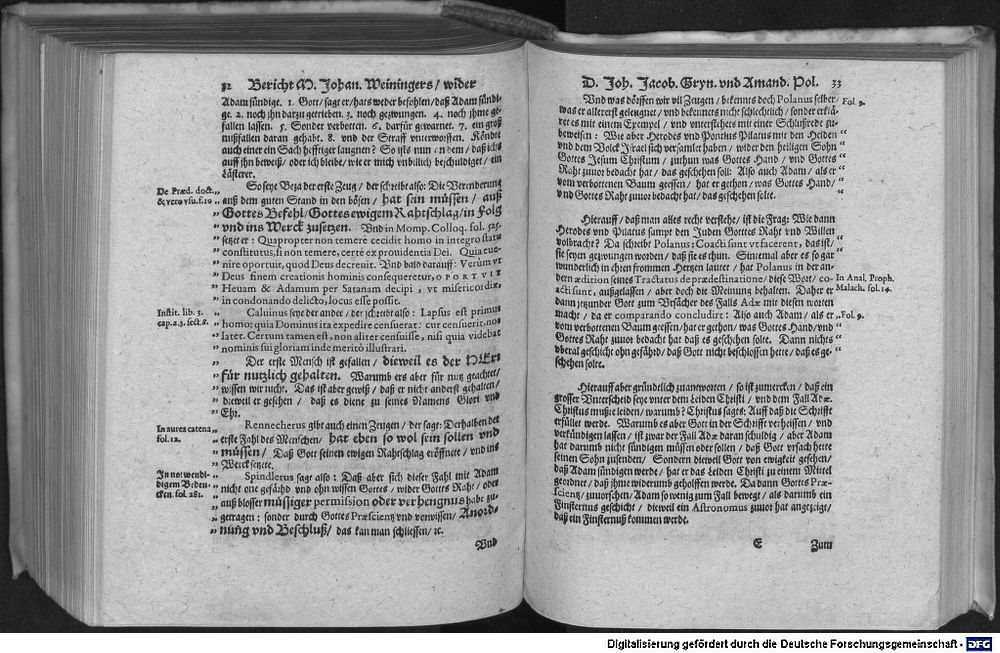 32 Bericht M. Johan. Weiningers / wider
Adam sündige. 1. Gott / sagt er / hats weder befohlen / daß Adam sündi-
ge. 2. noch jhn darzu getrieben. 3. noch gezwungen. 4. noch jhme ge-
fallen lassen. 5. Sonder verbotten. 6. darfür gewarnet. 7. ein groß
mißfallen daran gehabt. 8. vnd der Straff vnterworffen. Köndte
auch einer ein Sach hefftiger laugnen? So ists nun an dem / daß ichs
auff jhn beweiß / oder ich bleibe / wie er mich vnbillich beschuldiget / ein
Lästerer.
De Præd. doct.
& vero vsu. f. 10
So seye Beza der erste Zeug / der schreibt also: Die Verenderung
auß dem guten Stand in den bösen / hat sein müssen / auß
Gottes Befehl / Gottes ewigem Rahtschlag / in Folg
vnd ins Werck zusetzen. Vnd in Momp. Colloq. fol. 525.
setzt er: Quapropter non temerè cecidit homo in integro statu
constitutus, si non temere, certè ex prouidentia Dei. Quia eue-
nire oportuit, quod Deus decreuit. Vnd bald darauff: Verùm vt
Deus finem creationis hominis consequeretur, OPORTVIT
Heuam & Adamum per Satanam decipi, vt misericordiæ,
in condonando delicto, locus esse possit.
Instit. lib. 3.
cap. 23. sect. 8.
Caluinus seye der ander / der schreibt also: Lapsus est primus
homo: quia Dominus ita expedire censuerat: cur censuerit, nos
latet. Certum tamen est, non aliter censuisse, nisi quia videbat
nominis sui gloriam inde meritò illustrari.
Der erste Mensch ist gefallen / dieweil es der HErr
für nutzlich gehalten. Warumb ers aber für nutz geachtet /
wissen wir nicht. Das ist aber gewiß / daß er nicht anderst gehalten /
dieweil er gesehen / daß es diene zu seines Namens Glori vnd
Ehr.
In aurea catena
fol. 12.
Rennecherus gibt auch einen Zeugen / der sagt: Derhalben der
erste Fahl des Menschen / hat eben so wol sein sollen vnd
müssen / Daß Gott seinen ewigen Rahtschlag eröffnete / vnd ins
Werck setzete.
In notwendi-
digem Beden-
cken. fol. 281.
Spindlerus sagt also: Daß aber sich dieser Fahl mit Adam
nicht one gefährd vnd ohn wissen Gottes / wider Gottes Raht / oder
auß blosser müssiger permission oder verhengnus habe zu-
getragen: sonder durch Gottes Præscientz vnd vorwissen / Anord-
nung vnd Beschluß / das kan man schliessen / ꝛc.
Vnd
D. Joh. Jacob. Gryn. vnd Amand. Pol. 33
Vnd was dörffen wir vil Zeugen / bekennts doch Polanus selber /
was er allererst geleugnet / vnd bekennets nicht schlechtlich / sonder erklä-
ret es mit einem Exempel / vnd vnterstehets mit einer Schlußrede zu-
beweisen: Wie aber Herodes vnd Pontius Pilatus mit den Heiden
vnd dem Volck Israel sich versamlet haben / wider den heiligen Sohn
Gottes Jesum Christum / zuthun was Gottes Hand / vnd Gottes
Raht zuuor bedacht hat / das geschehen soll: Also auch Adam / als er
vom verbottenen Baum geessen / hat er gethon / was Gottes Hand /
vnd Gottes Raht zuuor bedacht hat / das geschehen solte.
Fol. 9.
Hierauff / daß man alles recht verstehe / ist die Frag: Wie dann
Herodes vnd Pilatus sampt den Juden Gottes Raht vnd Willen
volbracht? Da schreibt Polanus: Coacti sunt vt facerent, das ist /
sie seyen gezwungen worden / daß sie es thun. Sintemal aber es so gar
wunderlich in ohren frommen Hertzen lautet / hat Polanus in der an-
dern ædition seines Tractatus de prædestinatione / diese Wort / co-
acti sunt, außgelassen / aber doch die Meinung behalten. Daher er
dann jetzunder Gott zum Vrsächer des Falls Adæ mit diesen worten
macht / da er comparando concludirt: Also auch Adam / als er
vom verbottenen Baum geessen / hat er gethon / was Gottes Hand / vnd
Gottes Raht zuuor bedacht hat daß es geschehen solte. Dann nichts
vberal geschicht ohn gefährd / daß Gott nicht beschlossen hette / daß es ge-
schehen solte.
In Anal. Proph.
Malach. fol. 14.
Fol. 9.
Hierauff aber gründtlich zuantworten / so ist zumercken / daß ein
grosser Vnterscheid seye vnter dem Leiden Christi / vnd dem Fall Adæ.
Christus mußte leiden / warumb? Christus sagts: Auff daß die Schrifft
erfüllet werde. Warumb es aber Gott in der Schrifft verheissen / vnd
verkündigen lassen / ist zwar der Fall Adæ daran schuldig / aber Adam
hat darumb nicht sündigen müssen oder sollen / daß Gott vrsach hette
seinen Sohn zusenden / Sondern dieweil Gott von ewigkeit gesehen /
daß Adam sündigen werde / hat er das Leiden Christi zu einem Mittel
geordnet / daß jhme widerumb geholffen werde. Da dann Gottes Præ-
scientz / zuuorsehen / Adam so wenig zum Fall bewegt / als darumb ein
Finsternus geschicht / dieweil ein Astronomus zuuor hat angezeigt /
daß ein Finsternuß kommen werde.
E Zum
Digitalisierung gefördert durch die Deutsche Forschungsgemeinschaft - DFG